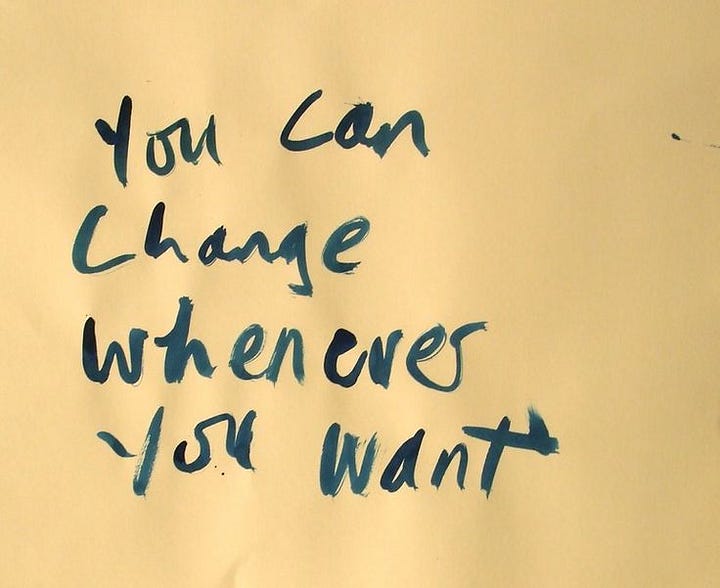 You Can
Change
Whenever
You Want